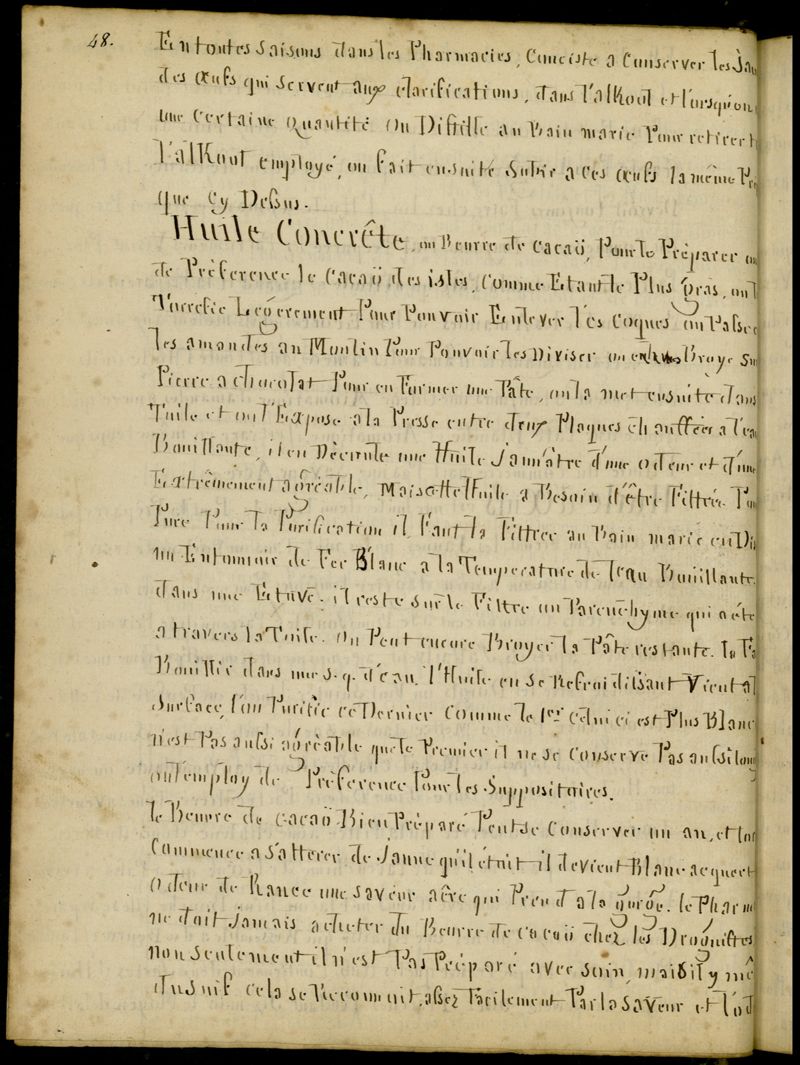 48.
En toutes saisons dans les Pharmacies, Conciste a Conserver les Jau
des œufs qui servent aux clarifications, dans l'alKool et lorsqu'on
une certaine quantité on Distille au Bain marie Pour retirer l
l'alKool employé, on fait ensuite Subir a ces œufs la même Pr
que Cy Dessus.
Huile Concrête, ou Beurre de Cacaö, Pour le Préparer on
de Preference le Cacaö des isles, Comme Etant le Plus gras, on l
Torrefie Legérement Pour Pouvoir Enlever les Coques on Passe
les amandes au Moulin Pour Pouvoir les Diviser on Broye Su
Pierre a chocolat Pour en Former une Pâte, on la met ensuite dans
Toile et on l'Expose a la Presse entre deux Plaques chauffées a l'eau
Bouillante, il en Découle une Huile Jaunâtre d'une odeur et d'une
Extrêmement agréable, Mais cette Huile a Besoin d'être Filtrée Pou
Pure Pour la Purification il Faut la Filtrer au Bain marie ou D
un Entonnoir de Fer Blanc a la Temperature de l'eau Bouillante
dans une Etuve. il reste sur le Filtre un Parenchyme qui a été
a travers la Toile. On Peut encore Broyer la Pâte restante. la Fa
Bouillir dans une s.q. d'eau. l'Huile en se Refroidissant Vient a l
Surface, l'on Purifie ce Dernier Comme le 1er celui ci est Plus Blanc
n'est Pas aussi agréable que le Premier il ne se Conserve Pas aussi lon
on l'employ de Préférence Pour les Suppositoires.
le Beurre de Cacaö Bien Préparé Peut se Conserver un an, et lor
Commence a S'alterer de Jaune qu'il était il devient Blanc acquert
Odeur de Rance une saveur acre qui Prend a la gorge. le Pharm
ne doit Jamais acheter du Beurre de Cacaö chez les Droguistes
non seulement il n'est Pas Préparé avec soin, mais il y mê
du suif cela se Reconnoit assez Facilement Par la Saveur et l'od